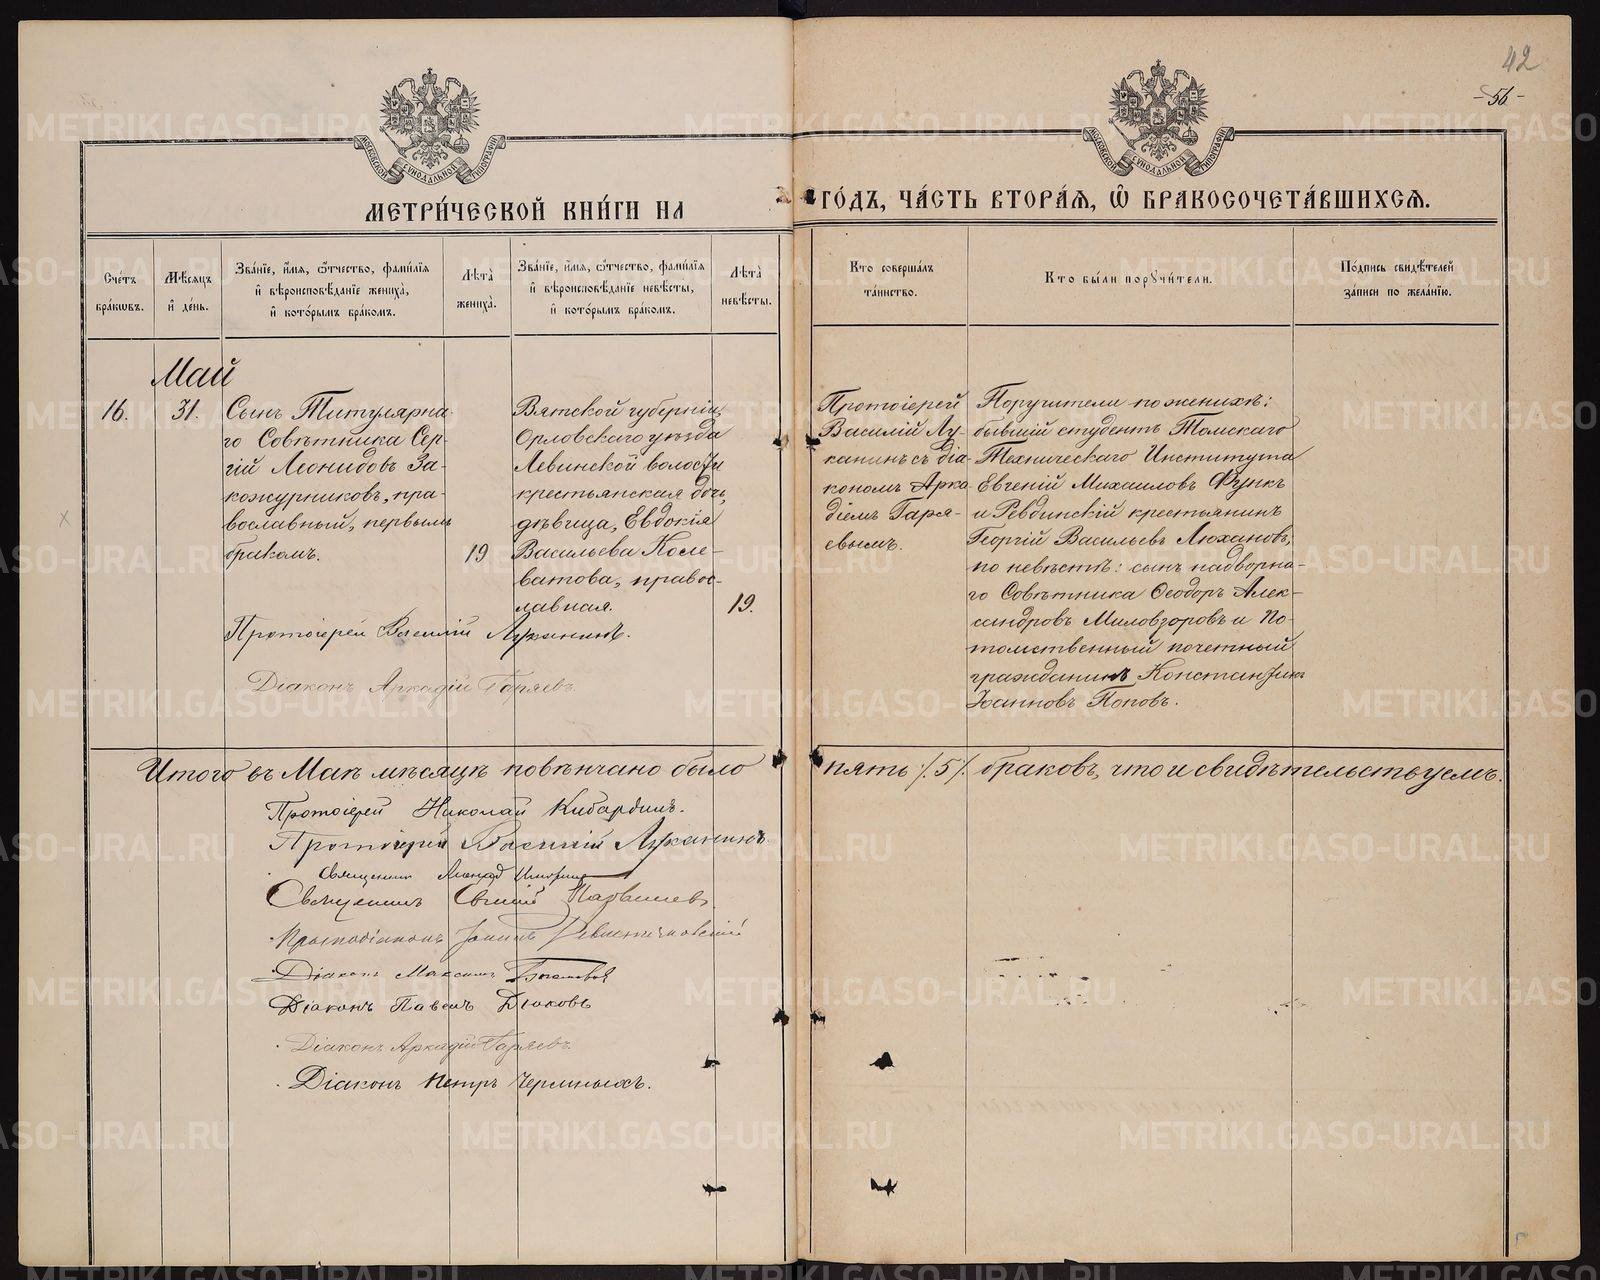 42
- 56 -
МОСКОВСКОЙ СѴНОДАЛЬНОЙ ТИПОГРАФІИ
МОСКОВСКОЙ СѴНОДАЛЬНОЙ ТИПОГРАФІИ
МЕТРИ́ЧЕСКОЙ КНИ́ГИ НА
ГО́ДЪ, ЧА́СТЬ ВТОРА́Я, Ѡ БРАКОСОЧЕТА́ВШИХСЯ.
Сче́тъ
бра́кωвъ.
Мѣ́сяцъ
и҆ де́нь.
Зва́нїе, и҆́мя, ѻ҆́тчество, фами́лїя
и҆ вѣроисповѣ́данїе жениха̀,
и҆ кото́рымъ бра́комъ.
Лѣ́та
жениха̀.
Зва́нїе, и҆́мя, ѻ҆́тчество, фами́лїя
и҆ вѣроисповѣ́данїе невѣ́сты,
и҆ кото́рымъ бра́комъ.
Лѣ́та
невѣ́сты.
Кто соверша́лъ
та́инство.
Кто бы́ли порꙋчи́тели.
По́дпись свидѣ́телей
за́писи по жела́нїю.
Май
16.
31.
Сынъ Титулярна-
го Совѣтника Сер-
гій Леонидовъ За-
кожурниковъ, пра-
вославный, первымъ
бракомъ.
19
Вятской губерніи,
Орловскаго уѣзда
Левинской волости
крестьянская дочь,
дѣвица, Евдокія
Васильева Коле-
ватова, правос-
лавная.
19.
Протоіерей Василій Луканинъ.
Діаконъ Аркадій Гаряевъ
Протоіерей
Василій Лу-
канинъ съ діа-
кономъ Арка-
діемъ Гаря-
евымъ.
Поручители по женихѣ:
бывшій студентъ Томскаго
Техническаго Института
Евгеній Михаиловъ Функъ
и Ревдинскій крестьянинъ
Георгій Васильевъ Люхановъ,
по невѣстѣ: сынъ надворна-
го Совѣтника Ѳеодоръ Алек-
сандровъ Миловзоровъ и По-
томственный почетный
гражданинъ Константинъ
Іоанновъ Поповъ.
Итого въ Маѣ мѣсяцѣ повѣнчано было
пять /.5/. браковъ, что и свидѣтельствуемъ.
Протоіерей Николай Кибардинъ.
Протоіерей Василій Луканинъ
Священникъ
Священникъ
Протодіаконъ Іоаннъ
Діаконъ Максимъ
Діаконъ Павелъ Дьяковъ
Діаконъ Аркадій Гаряевъ
Діаконъ Петръ Черемныхъ.
METRIKI.GASO-URAL.RU